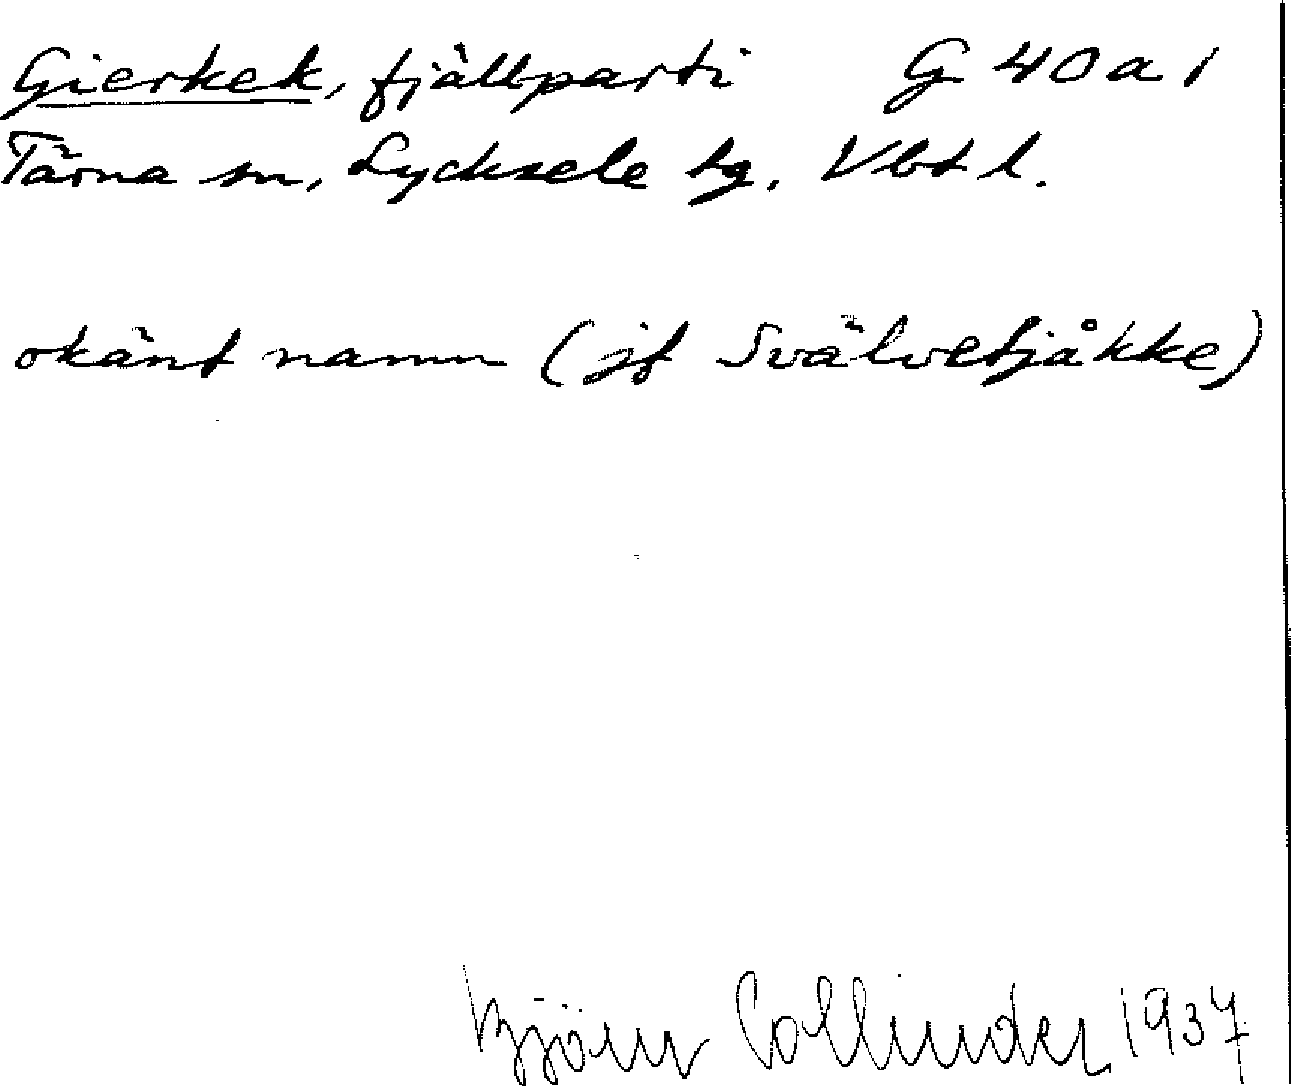 Gierkek, fjällparti G 40 a 1
Tärna sn, Lycksele tg, Vbt l.
okänt namn (jf Svälvetjåkke)
Björn Collinder 1937